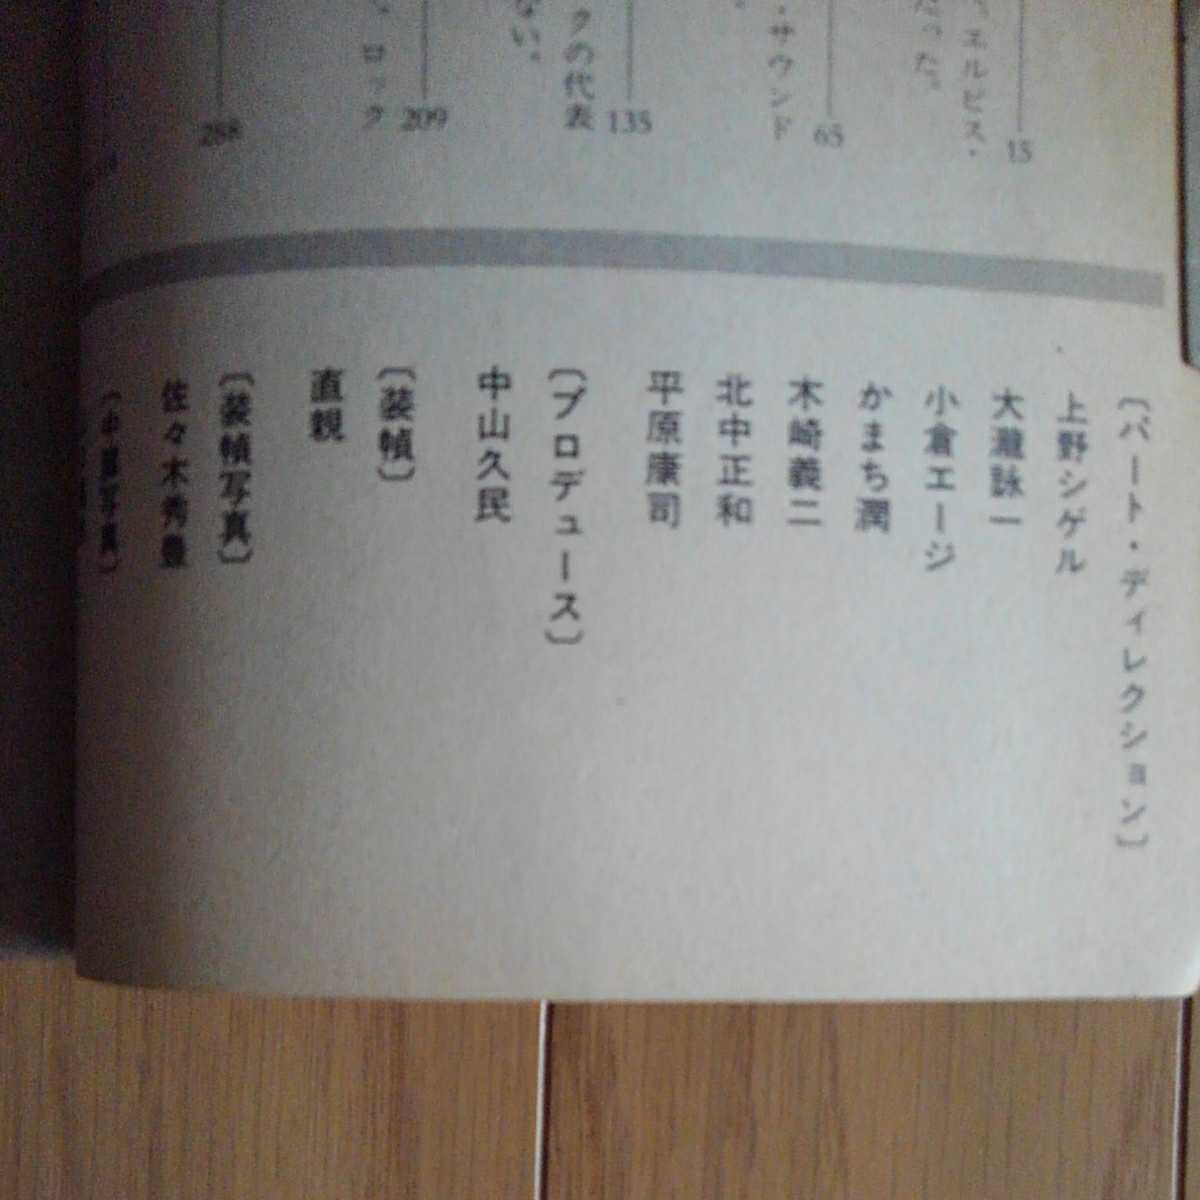 、エルビス・
だった。
15
・サウンド
65
クの代表
ない。
135
ロック
209
288
〔パート・ディレクション〕
上野シゲル
大瀧詠一
小倉エージ
かまち潤
木崎義二
北中正和
平原康司
〔プロデュース〕
中山久民
〔装幀〕
直親
〔装幀写真〕
佐々木秀豊